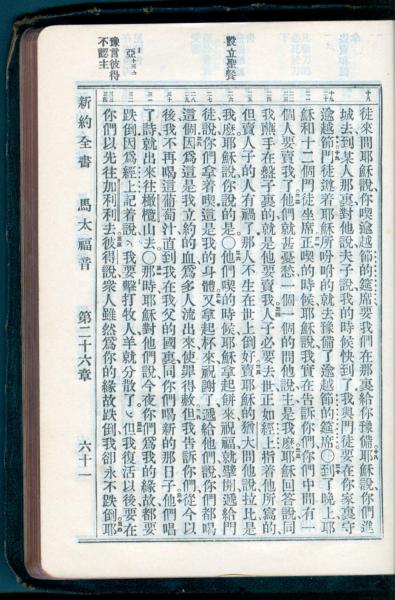 設立聖餐
豫言彼得
不認主
新約全書　馬太福音　第二十六章　六十一
徒來問耶穌說你喫逾越節的筵席要我們在那裏給你豫備耶穌說你們進
城去到某人那裏對他說夫子說我的時候快到了我與門徒要在你家裏守
逾越節門徒遵着耶穌所吩咐的就去豫備了逾越節的筵席○到了晚上耶
穌和十二個門徒坐席正喫的時候耶穌說我實在告訴你們你們中間有一
個人要賣我了他們就甚憂愁一個一個的問他說主是我麼耶穌回答說同
我蘸手在盤子裏的就是他要賣我人子必要去世正如經上指着他所寫的
但賣人子的人有禍了那人不生在世上倒好賣耶穌的猶大問他說拉比是
我麼耶穌說你說的是○他們喫的時候耶穌拿起餅來祝福就擘開遞給門
徒說你們拿着喫這是我的身體又拿起杯來祝謝了遞給他們說你們都喝
這個因爲這是我立約的血爲多人流出來使罪得赦但我告訴你們從今以
後我不再喝這葡萄汁直到我在我父的國裏同你們喝新的那日子他們唱
了詩就出來往橄欖山去○那時耶穌對他們說今夜你們爲我的緣故都要
跌倒因爲經上記着說我要擊打牧人羊就分散了但我復活以後要在
你們以先往加利利去彼得說衆人雖然爲你的緣故跌倒我卻永不跌倒耶